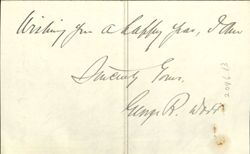 Wishing you a happy year, I am
Sincerely Yours,
George R.